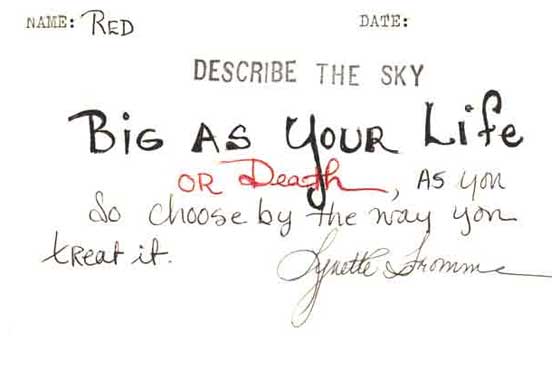 NAME: RED DATE:
DESCRIBE THE SKY
BiG AS YOUR Life
OR Death, AS you
So choose by the way you
tReat it.
Lynette Fromme